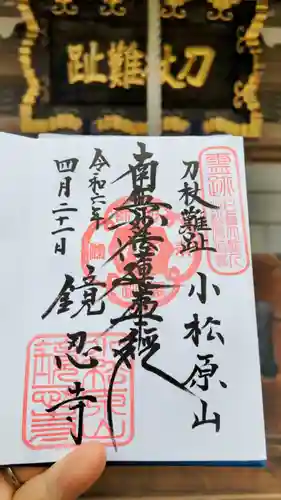 刀杖難趾
霊跡
刀杖難趾
小松原山
南無妙法蓮華経
令和六年
四月二十一日
鏡忍寺